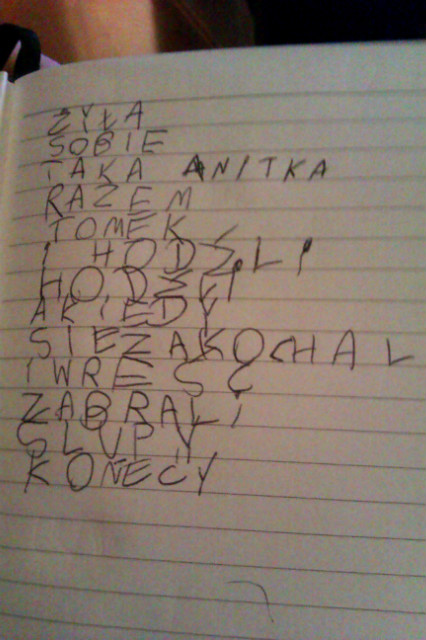 ZYŁA
SOBIE
TAKA ANITKA
RAZEM
TOMEK
I HODZILI
HODZILI
AKIEDY
SIEZAKOCHAL
IWRESC
ZABRALI
SLUPY
KOŃECY